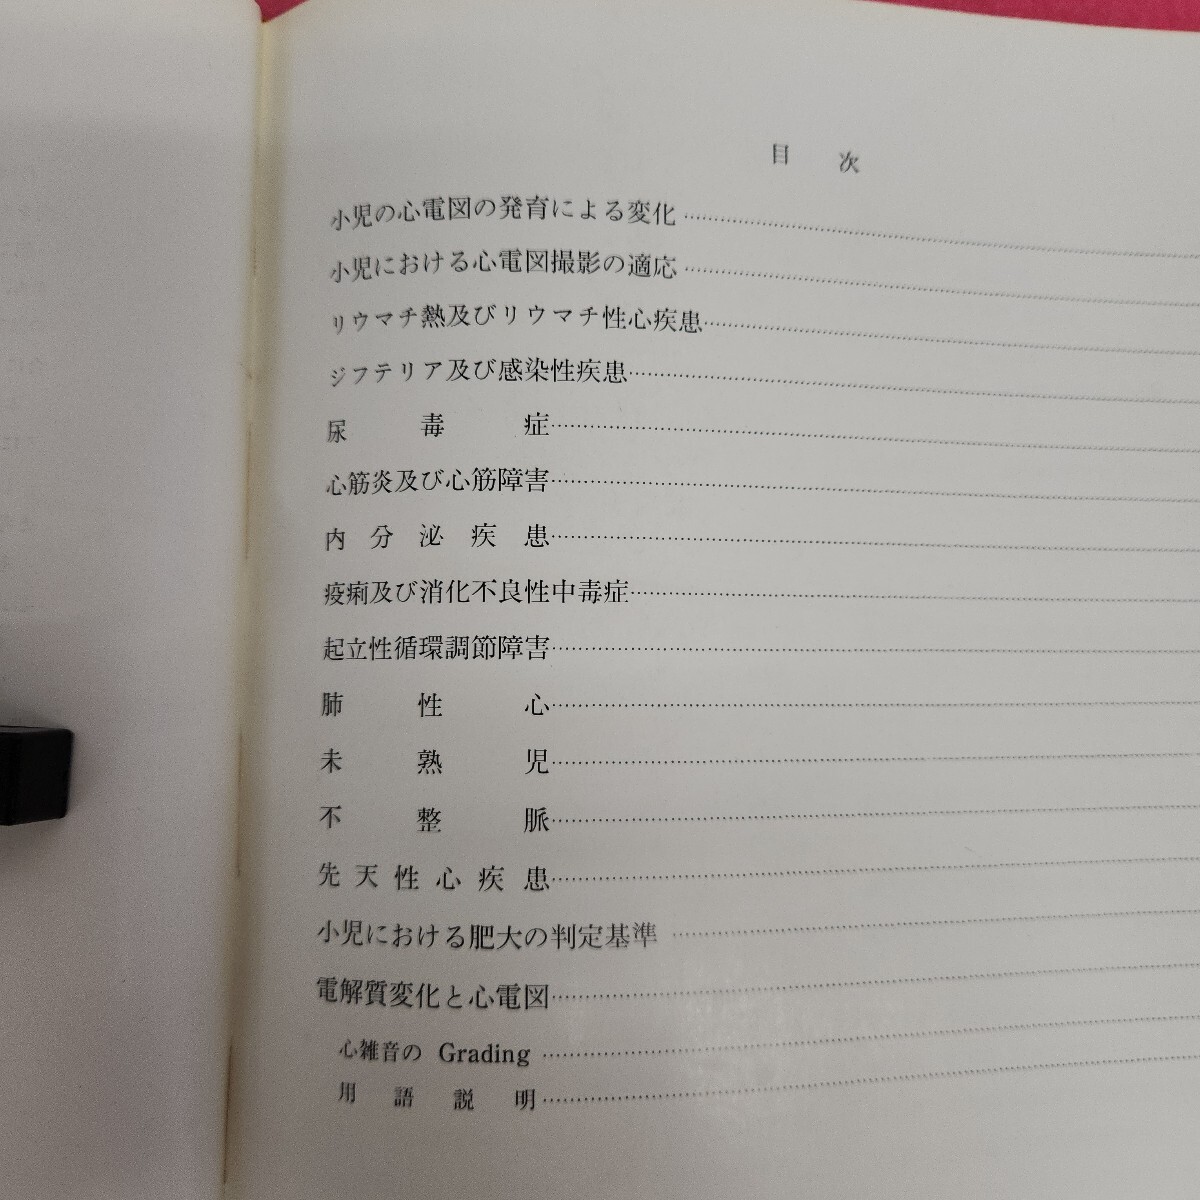 目次
小児の心電図の発育による変化
小児における心電図撮影の適応
リウマチ熱及びリウマチ性心疾患
ジフテリア及び感染性疾患
尿毒症
心筋炎及び心筋障害
内分泌疾患
疫痢及び消化不良性中毒症
起立性循環調節障害
肺性心
未熟児
不整脈
先天性心疾患
小児における肥大の判定基準
電解質変化と心電図
心雑音の Grading
用語説明